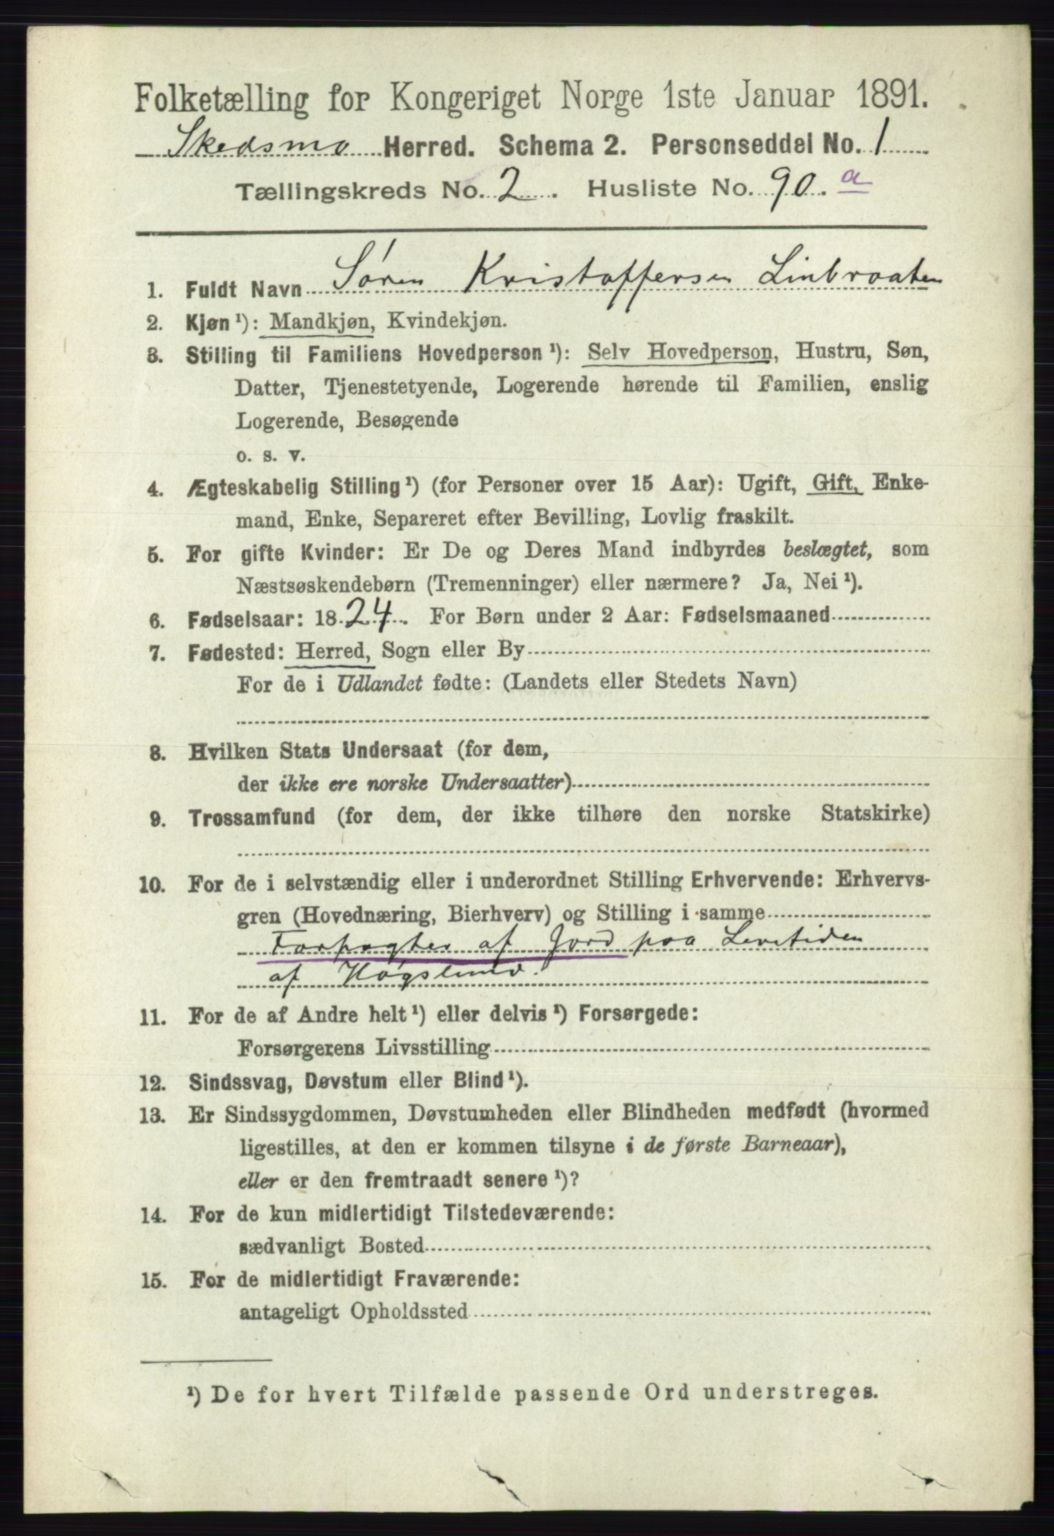 Folketælling for Kongeriget Norge 1ste Januar 1891.
Skedsmo Herred. Schema 2. Personseddel No. 1
Tællingskreds No. 2. Husliste No. 90. a
1. Fuldt Navn Søren Kristoffersen Linbraaten
2. Kjøn¹): Mandkjøn, Kvindekjøn.
3. Stilling til Familiens Hovedperson¹): Selv Hovedperson, Hustru, Søn,
Datter, Tjenestetyende, Logerende hørende til Familien, enslig
Logerende, Besøgende
o. s. v.
4. Ægteskabelig Stilling¹) (for Personer over 15 Aar): Ugift, Gift, Enke-
mand, Enke, Separeret efter Bevilling, Lovlig fraskilt.
5. For gifte Kvinder: Er De og Deres Mand indbyrdes beslægtet, som
Næstsøskendebørn (Tremenninger) eller nærmere? Ja, Nei¹).
6. Fødselsaar: 1824. For Børn under 2 Aar: Fødselsmaaned
7. Fødested: Herred, Sogn eller By
For de i Udlandet fødte: (Landets eller Stedets Navn)
8. Hvilken Stats Undersaat (for dem,
der ikke ere norske Undersaatter)
9. Trossamfund (for dem, der ikke tilhøre den norske Statskirke)
10. For de i selvstændig eller i underordnet Stilling Erhvervende: Erhvervs-
gren (Hovednæring, Bierhverv) og Stilling i samme
Forpagter af Jord paa Levetiden
af Høgslund.
11. For de af Andre helt¹) eller delvis¹) Forsørgede:
Forsørgerens Livsstilling
12. Sindssvag, Døvstum eller Blind¹).
13. Er Sindssygdommen, Døvstumheden eller Blindheden medfødt (hvormed
ligestilles, at den er kommen tilsyne i de første Barneaar),
eller er den fremtraadt senere¹)?
14. For de kun midlertidigt Tilstedeværende:
sædvanligt Bosted
15. For de midlertidigt Fraværende:
antageligt Opholdssted
¹) De for hvert Tilfælde passende Ord understreges.